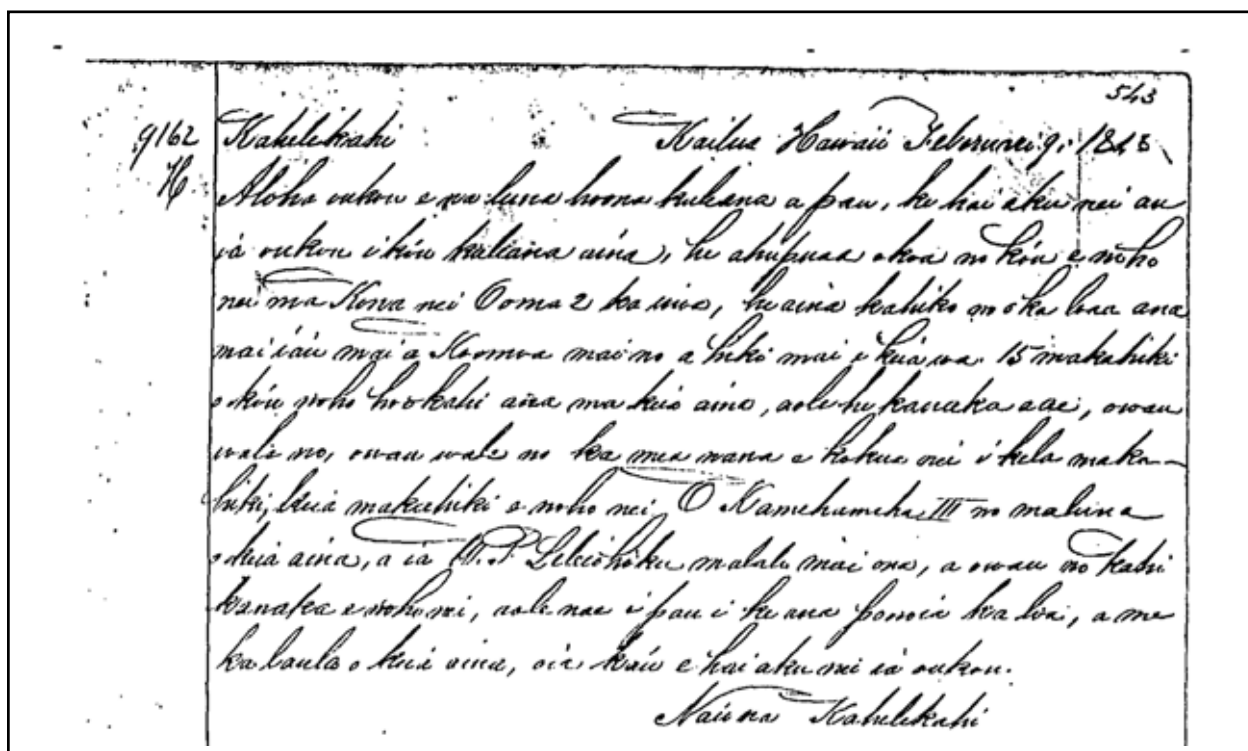 543
9162 Kahelekahi Kailua Hawaii Feberuari 9. 1848
H. Aloha oukou e na luna hoona kuleana a pau, ke hai aku nei au
ia oukou i ko'u kuleana aina, he ahupuaa okoa no ko'u e noho
nei ma Kona nei Ooma 2 ka inoa, he aina kahiko no o ka loaa ana
mai ia'u mai a Koomoa mai no a hiki mai i keia wa. 15 makahiki
o ko'u noho hookahi ana ma keia aina, aole he kanaka e ae, owau
wale no, owau wale no ka mea nana e kokua nei i kela maka-
hiki, keia makahiki e noho nei, O Kamehameha III no maluna
o keia aina, a ia W.P. Leleiohoku malalo mai ona, a owau no kahi
kanaka e noho nei, aole nae i pau i ke ana ponoia ka loa, a me
ka laula o keia aina, oia ka'u e hai aku nei ia oukou.
Na'u na Kahelekahi